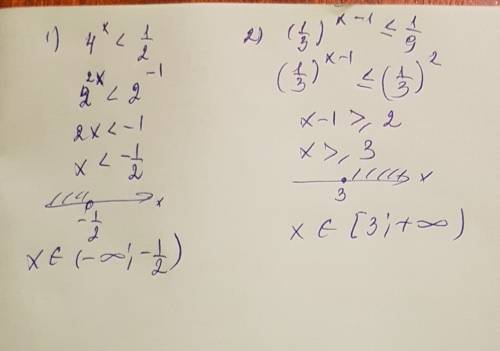 1) 4^x < 1/2
2^{2x} < 2^{-1}
2x < -1
x < -1/2
-1/2 x
x ∈ (-∞; -1/2)
2) (1/3)^{x-1} ≤ 1/9
(1/3)^{x-1} ≤ (1/3)^2
x-1 ≥ 2
x ≥ 3
3 x
x ∈ [3; +∞)